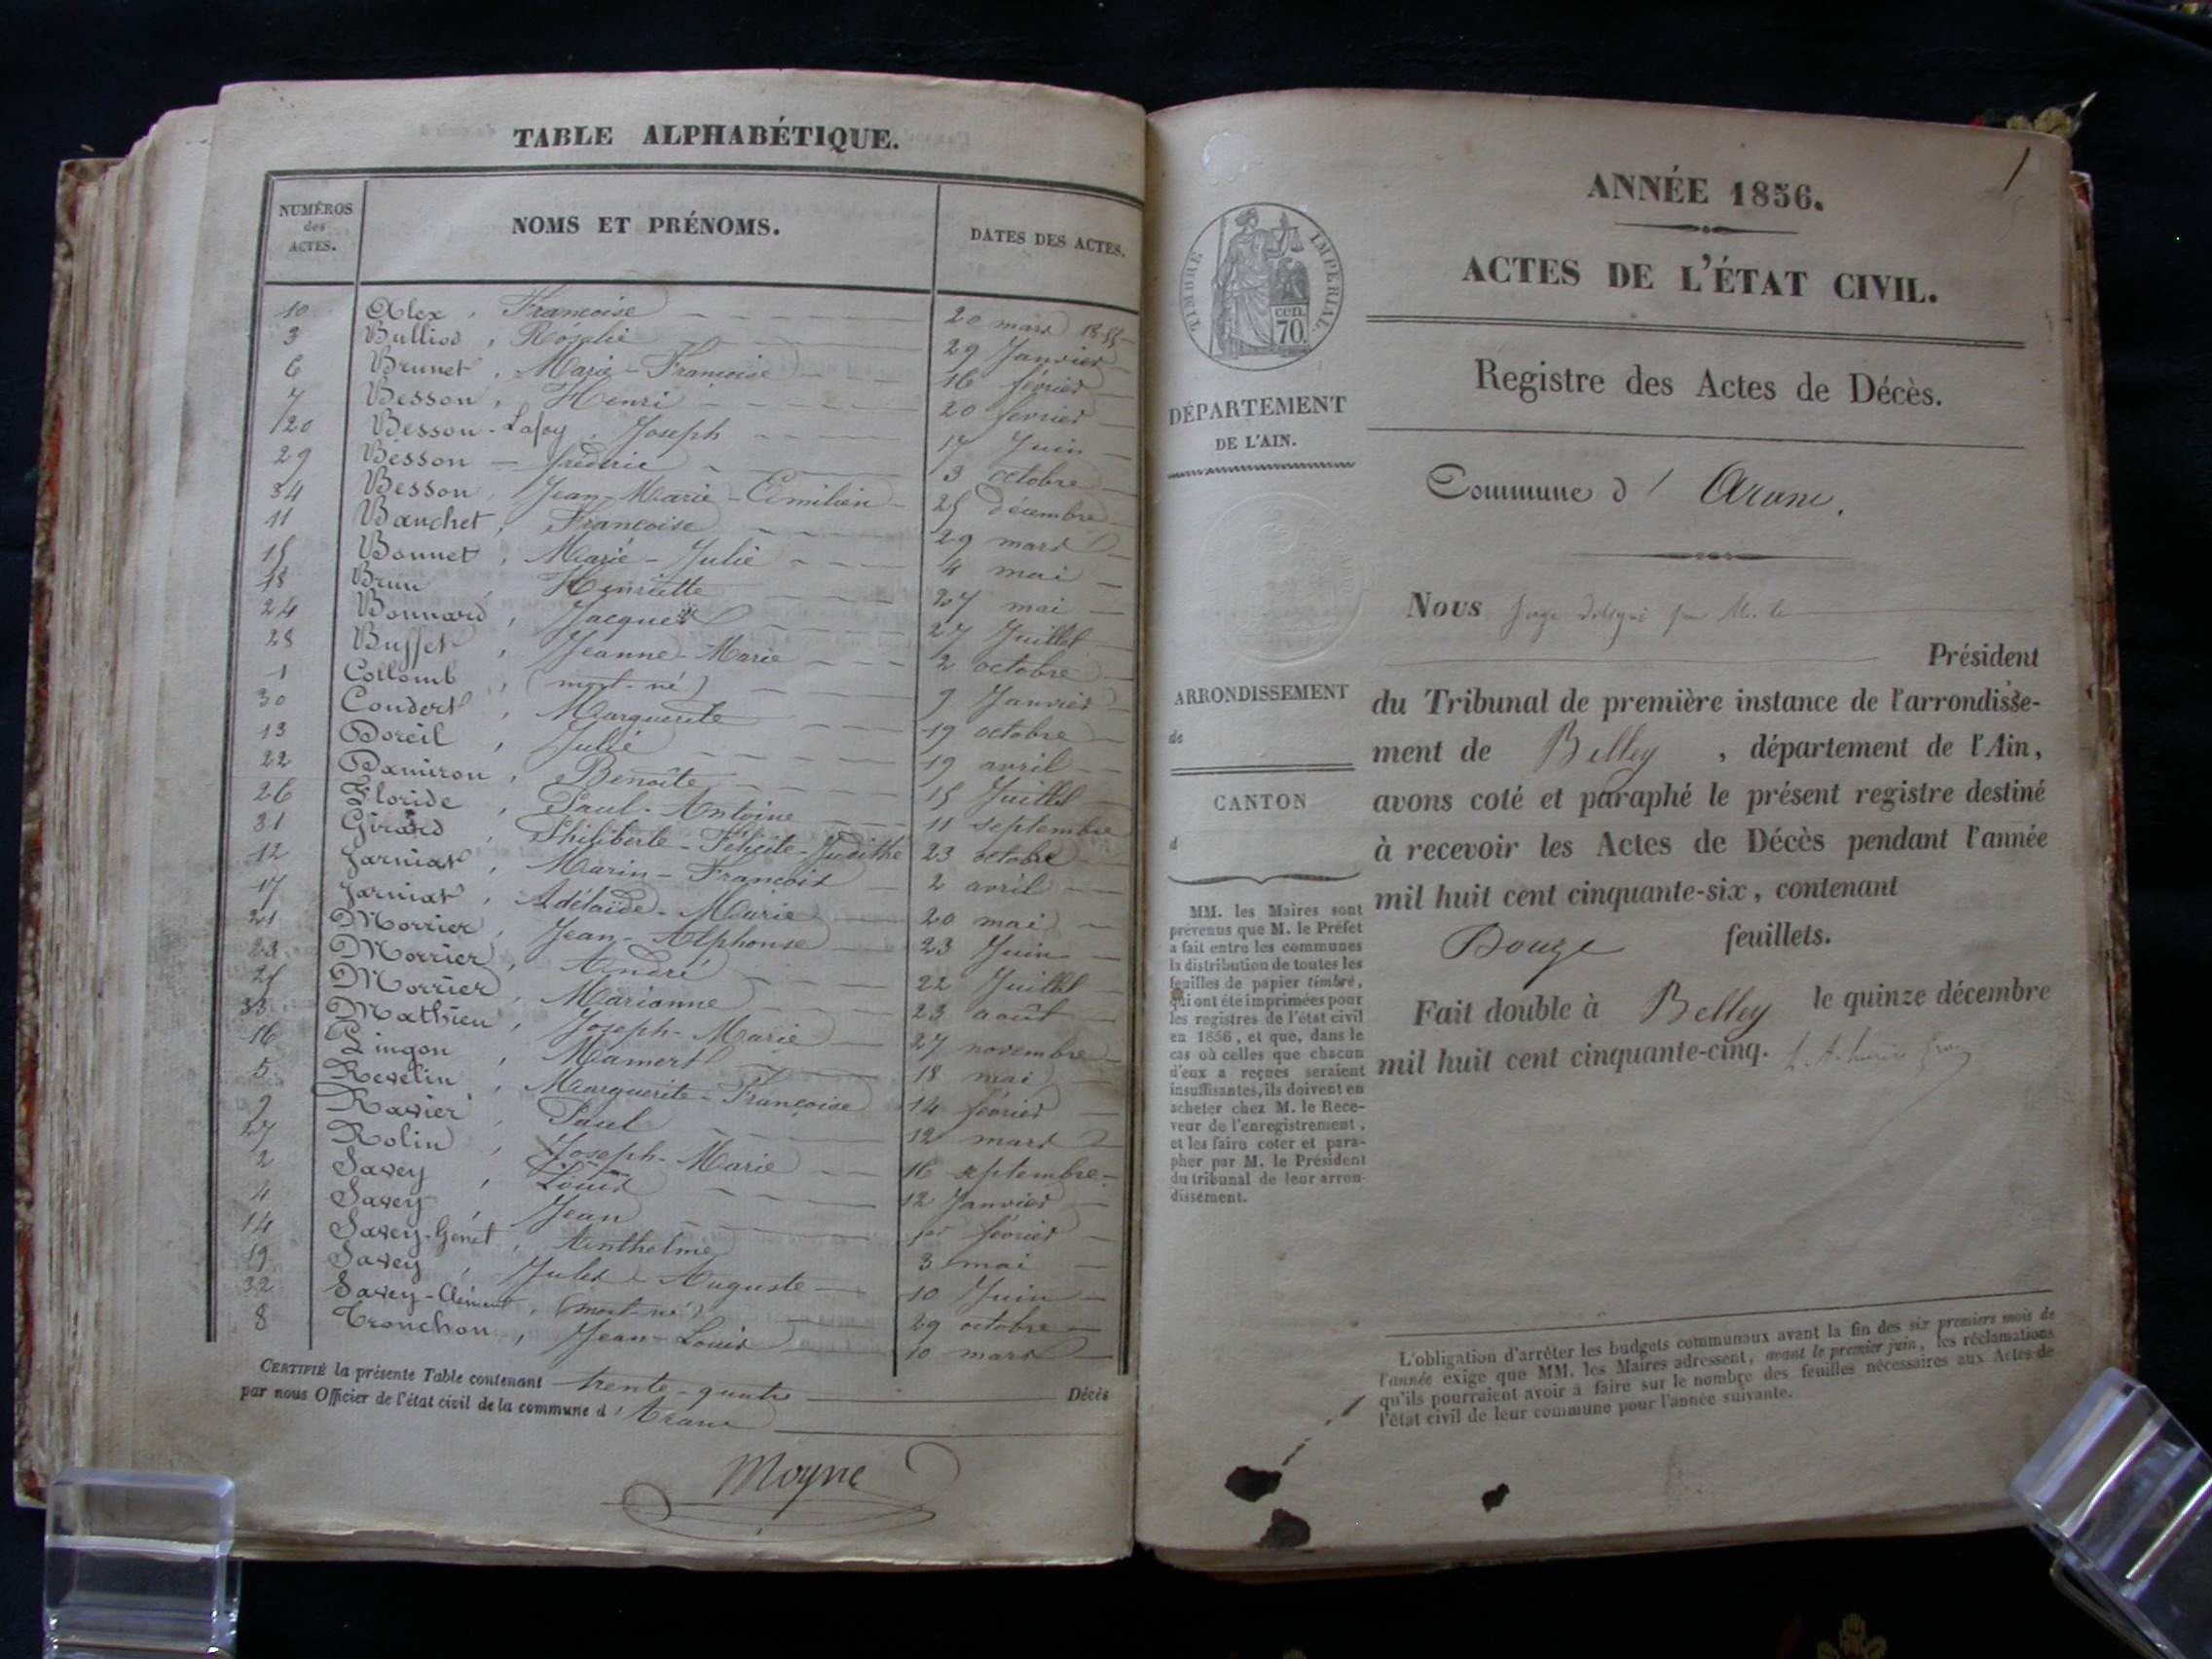 TABLE ALPHABÉTIQUE.
NUMÉROS des ACTES. NOMS ET PRÉNOMS. DATES DES ACTES.
10 Alex, Françoise 20 mars 1855
3 Bulliod, Rosalie 29 Janvier
6 Brunet, Marie-Françoise 16 février
7 Besson, Henri 20 février
20 Besson-Lafoy, Joseph 17 Juin
29 Besson - frédéric 3 octobre
34 Besson, Jean-Marie-Emilien 25 décembre
11 Bauchet, Françoise 29 mars
15 Bonnet, Marie-Julie 4 mai
18 Brun, Henriette 27 mai
24 Bonnard, Jacques 27 Juillet
28 Buffet, Jeanne-Marie 2 octobre
1 Collomb, (mort-né) 9 Janvier
30 Coudert, Marguerite 19 octobre
13 Doreil, Julie 19 avril
22 Damiron, Benoîte 15 Juillet
26 Floride, Paul-Antoine 11 septembre
31 Girard, Philiberte-Félicité-Judithe 23 octobre
12 Jarniat, Marin-François 2 avril
17 Jarniat, Adélaïde-Marie 20 mai
21 Morrier, Jean-Alphonse 23 Juin
23 Morrier, André 22 Juillet
25 Morrier, Marianne 23 août
33 Mathieu, Joseph-Marie 27 novembre
16 Pingon, Mamert 18 mai
5 Revelin, Marguerite-Françoise 14 février
9 Ravier, Paul 12 mars
27 Rolin, Joseph-Marie 16 septembre
2 Savey, Louis 12 Janvier
4 Savey, Jean 1er février
14 Savey-Genet, Anthelme 3 mai
19 Savey, Jules-Auguste 10 Juin
32 Savey-Clément, (mort-né) 29 octobre
8 Tronchon, Jean-Louis 10 mars
CERTIFIÉ la présente Table contenant trente-quatre Décès
par nous Officier de l'état civil de la commune d'Aranc
Moyne
1
ANNÉE 1856.
ACTES DE L'ÉTAT CIVIL.
Registre des Actes de Décès.
TIMBRE IMPERIAL.
cen. 70.
DÉPARTEMENT
DE L'AIN.
ARRONDISSEMENT
de
CANTON
d
MM. les Maires sont
prévenus que M. le Préfet
a fait entre les communes
la distribution de toutes les
feuilles de papier timbré,
qui ont été imprimées pour
les registres de l'état civil
en 1856, et que, dans le
cas où celles que chacun
d'eux a reçues seraient
insuffisantes, ils doivent en
acheter chez M. le Rece-
veur de l'enregistrement,
et les faire coter et para-
pher par M. le Président
du tribunal de leur arron-
dissement.
Commune d' Aranc.
Nous Juge délégué par M. le
Président
du Tribunal de première instance de l'arrondisse-
ment de Belley, département de l'Ain,
avons coté et paraphé le présent registre destiné
à recevoir les Actes de Décès pendant l'année
mil huit cent cinquante-six, contenant
Douze feuillets.
Fait double à Belley le quinze décembre
mil huit cent cinquante-cinq.
L'obligation d'arrêter les budgets communaux avant la fin des six premiers mois de
l'année exige que MM. les Maires adressent, avant le premier juin, les réclamations
qu'ils pourraient avoir à faire sur le nombre des feuilles nécessaires aux Actes de
l'état civil de leur commune pour l'année suivante.